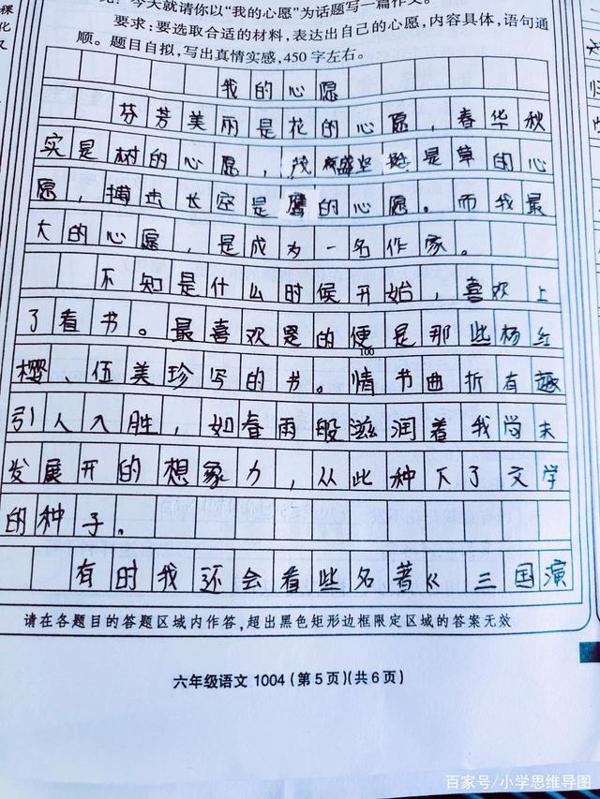 今天就请你以“我的心愿”为话题写一篇作文。
要求:要选取合适的材料,表达出自己的心愿,内容具体,语句通
顺。题目自拟,写出真情实感,450字左右。
我的心愿
芬芳美丽是花的心愿,春华秋
实是树的心愿,是草的心
愿,搏击长空是鹰的心愿。而我最
大的心愿,是成为一名作家。
不知是什么时候开始,喜欢上
了看书。最喜欢看的便是那些杨红
100
樱、伍美珍写的书。情书曲折有趣
引人入胜,如春雨般滋润着我尚未
发展开的想象力,从此种下了文学
的种子。
有时我还会看些名著《三国演
请在各题目的答题区域内作答,超出黑色矩形边框限定区域的答案无效
六年级语文 1004(第5页)(共6页)
百家号/小学思维导图